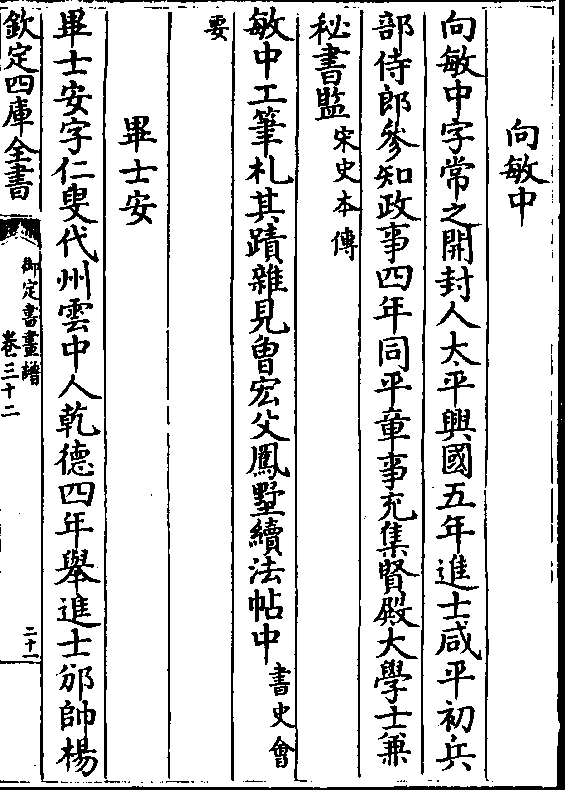 向敏中
向敏中字常之開封人太平興國五年進士咸平初兵
部侍郎參知政事四年同平章事充集賢殿大學士兼
秘書監宋史本傳
敏中工筆札其蹟雜見曾宏父鳳墅續法帖中書史會
要
畢士安
畢士安字仁叟代州雲中人乾德四年舉進士邠帥楊
欽定四庫全書
御定書畫譜
卷三十二
二十一